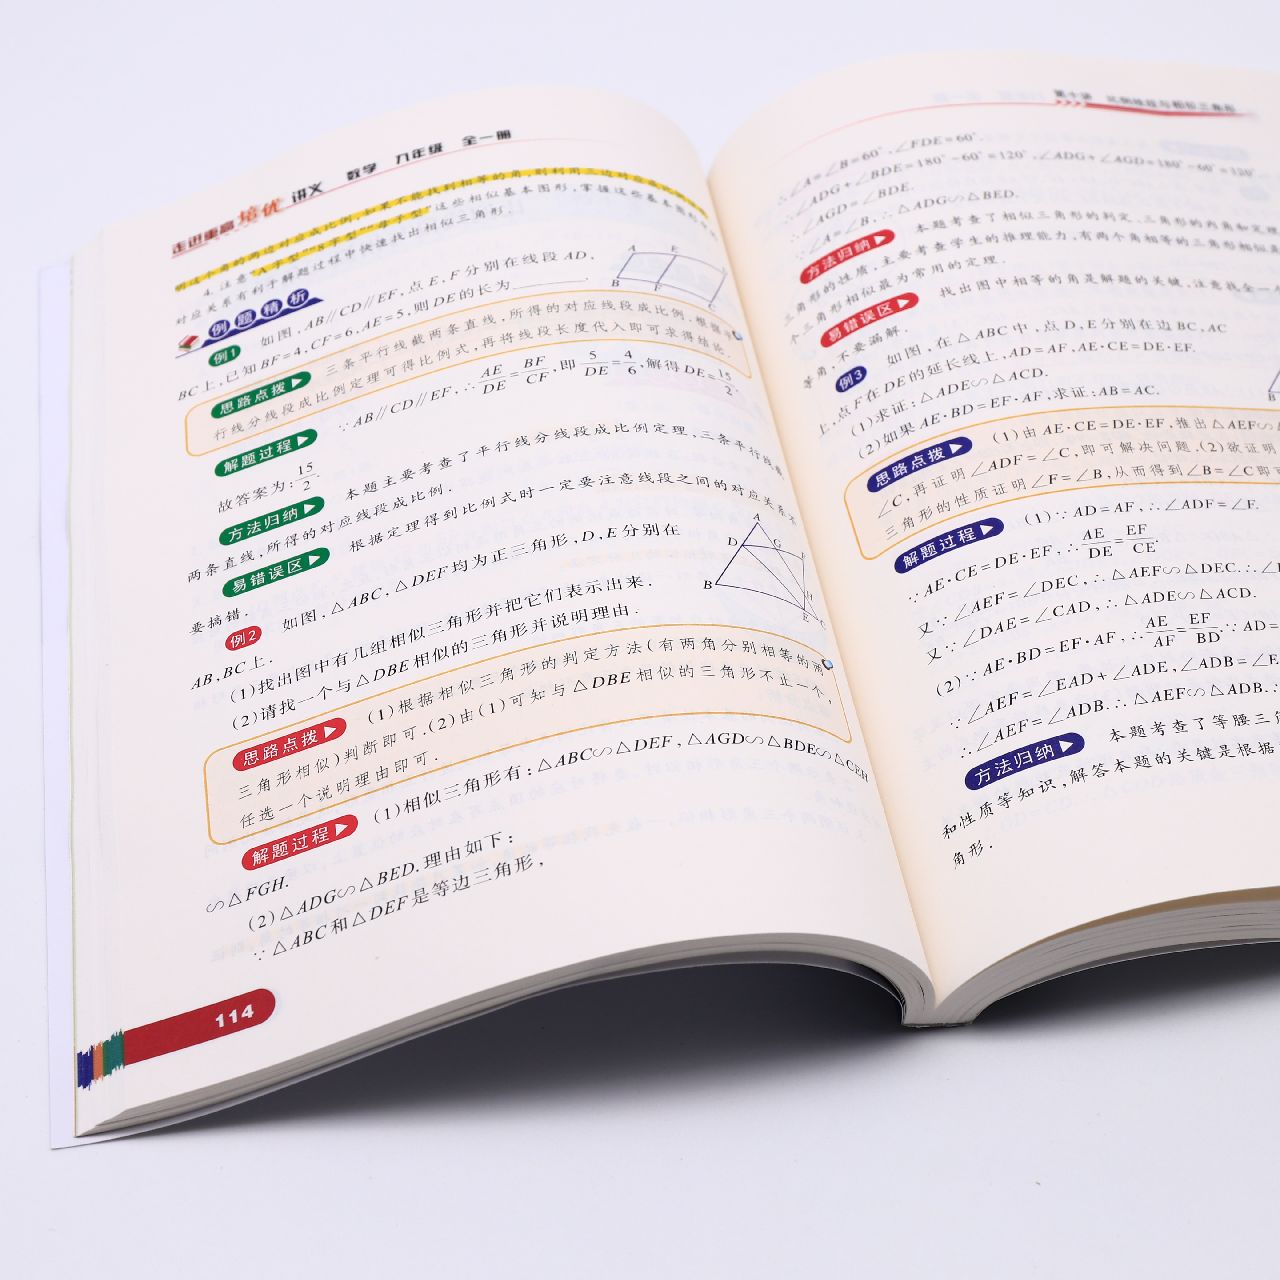 走进重高 培优 讲义 数学 九年级 全一册
明这个角的两边对应成比例,如果不能找到相等的角,则利用三边对应成比例
4. 注意"A字型""8字型""母子型"这些相似基本图形,掌握这些基本图形
对应关系有利于解题过程中快速找出相似三角形.
例题精析
例1 如图,AB∥CD∥EF,点E,F分别在线段AD,
BC上,已知BF=4,CF=6,AE=5,则DE的长为________.
A E
B F C
思路点拨 三条平行线截两条直线,所得的对应线段成比例,根据平
行线分线段成比例定理可得比例式,再将线段长度代入即可求得结论.
解题过程 ∵AB∥CD∥EF,∴AE/DE=BF/CF,即5/DE=4/6,解得DE=15/2.
故答案为:15/2.
方法归纳 本题主要考查了平行线分线段成比例定理,三条平行线截
两条直线,所得的对应线段成比例.
易错误区 根据定理得到比例式时一定要注意线段之间的对应关系,不
要搞错.
例2 如图,△ABC,△DEF均为正三角形,D,E分别在
AB,BC上.
(1)找出图中有几组相似三角形并把它们表示出来.
(2)请找一个与△DBE相似的三角形并说明理由.
A
D G F
H
B E C
思路点拨 (1)根据相似三角形的判定方法(有两角分别相等的两
三角形相似)判断即可.(2)由(1)可知与△DBE相似的三角形不止一个,
任选一个说明理由即可.
解题过程 (1)相似三角形有:△ABC∽△DEF,△AGD∽△BDE∽△CEH
∽△FGH.
(2)△ADG∽△BED.理由如下:
∵△ABC和△DEF是等边三角形,
114
第十讲 比例线段与相似三角形
∴∠A=∠B=60°,∠FDE=60°.
∴∠ADG+∠BDE=180°-60°=120°,∠ADG+∠AGD=180°-60°=120°
∴∠AGD=∠BDE.
∵∠A=∠B,∴△ADG∽△BED.
方法归纳 本题考查了相似三角形的判定、三角形的内角和定理
角形的性质,主要考查学生的推理能力,有两个角相等的三角形相似是
个三角形相似最为常用的定理.
易错误区 找出图中相等的角是解题的关键,注意找全一
等角,不要漏解.
例3 如图,在△ABC中,点D,E分别在边BC,AC
上,点F在DE的延长线上,AD=AF,AE·CE=DE·EF.
(1)求证:△ADE∽△ACD.
(2)如果AE·BD=EF·AF,求证:AB=AC.
B
思路点拨 (1)由AE·CE=DE·EF,推出△AEF∽△
∠C,再证明∠ADF=∠C,即可解决问题.(2)欲证明
三角形的性质证明∠F=∠B,从而得到∠B=∠C即可
解题过程 (1)∵AD=AF,∴∠ADF=∠F.
∵AE·CE=DE·EF,∴AE/DE=EF/CE.
又∵∠AEF=∠DEC,∴△AEF∽△DEC.∴∠
又∵∠DAE=∠CAD,∴△ADE∽△ACD.
(2)∵AE·BD=EF·AF,∴AE/AF=EF/BD.∵AD=
∵∠AEF=∠EAD+∠ADE,∠ADB=∠
∴∠AEF=∠ADB.∴△AEF∽△ADB.∴
方法归纳 本题考查了等腰三角
和性质等知识,解答本题的关键是根据
角形.